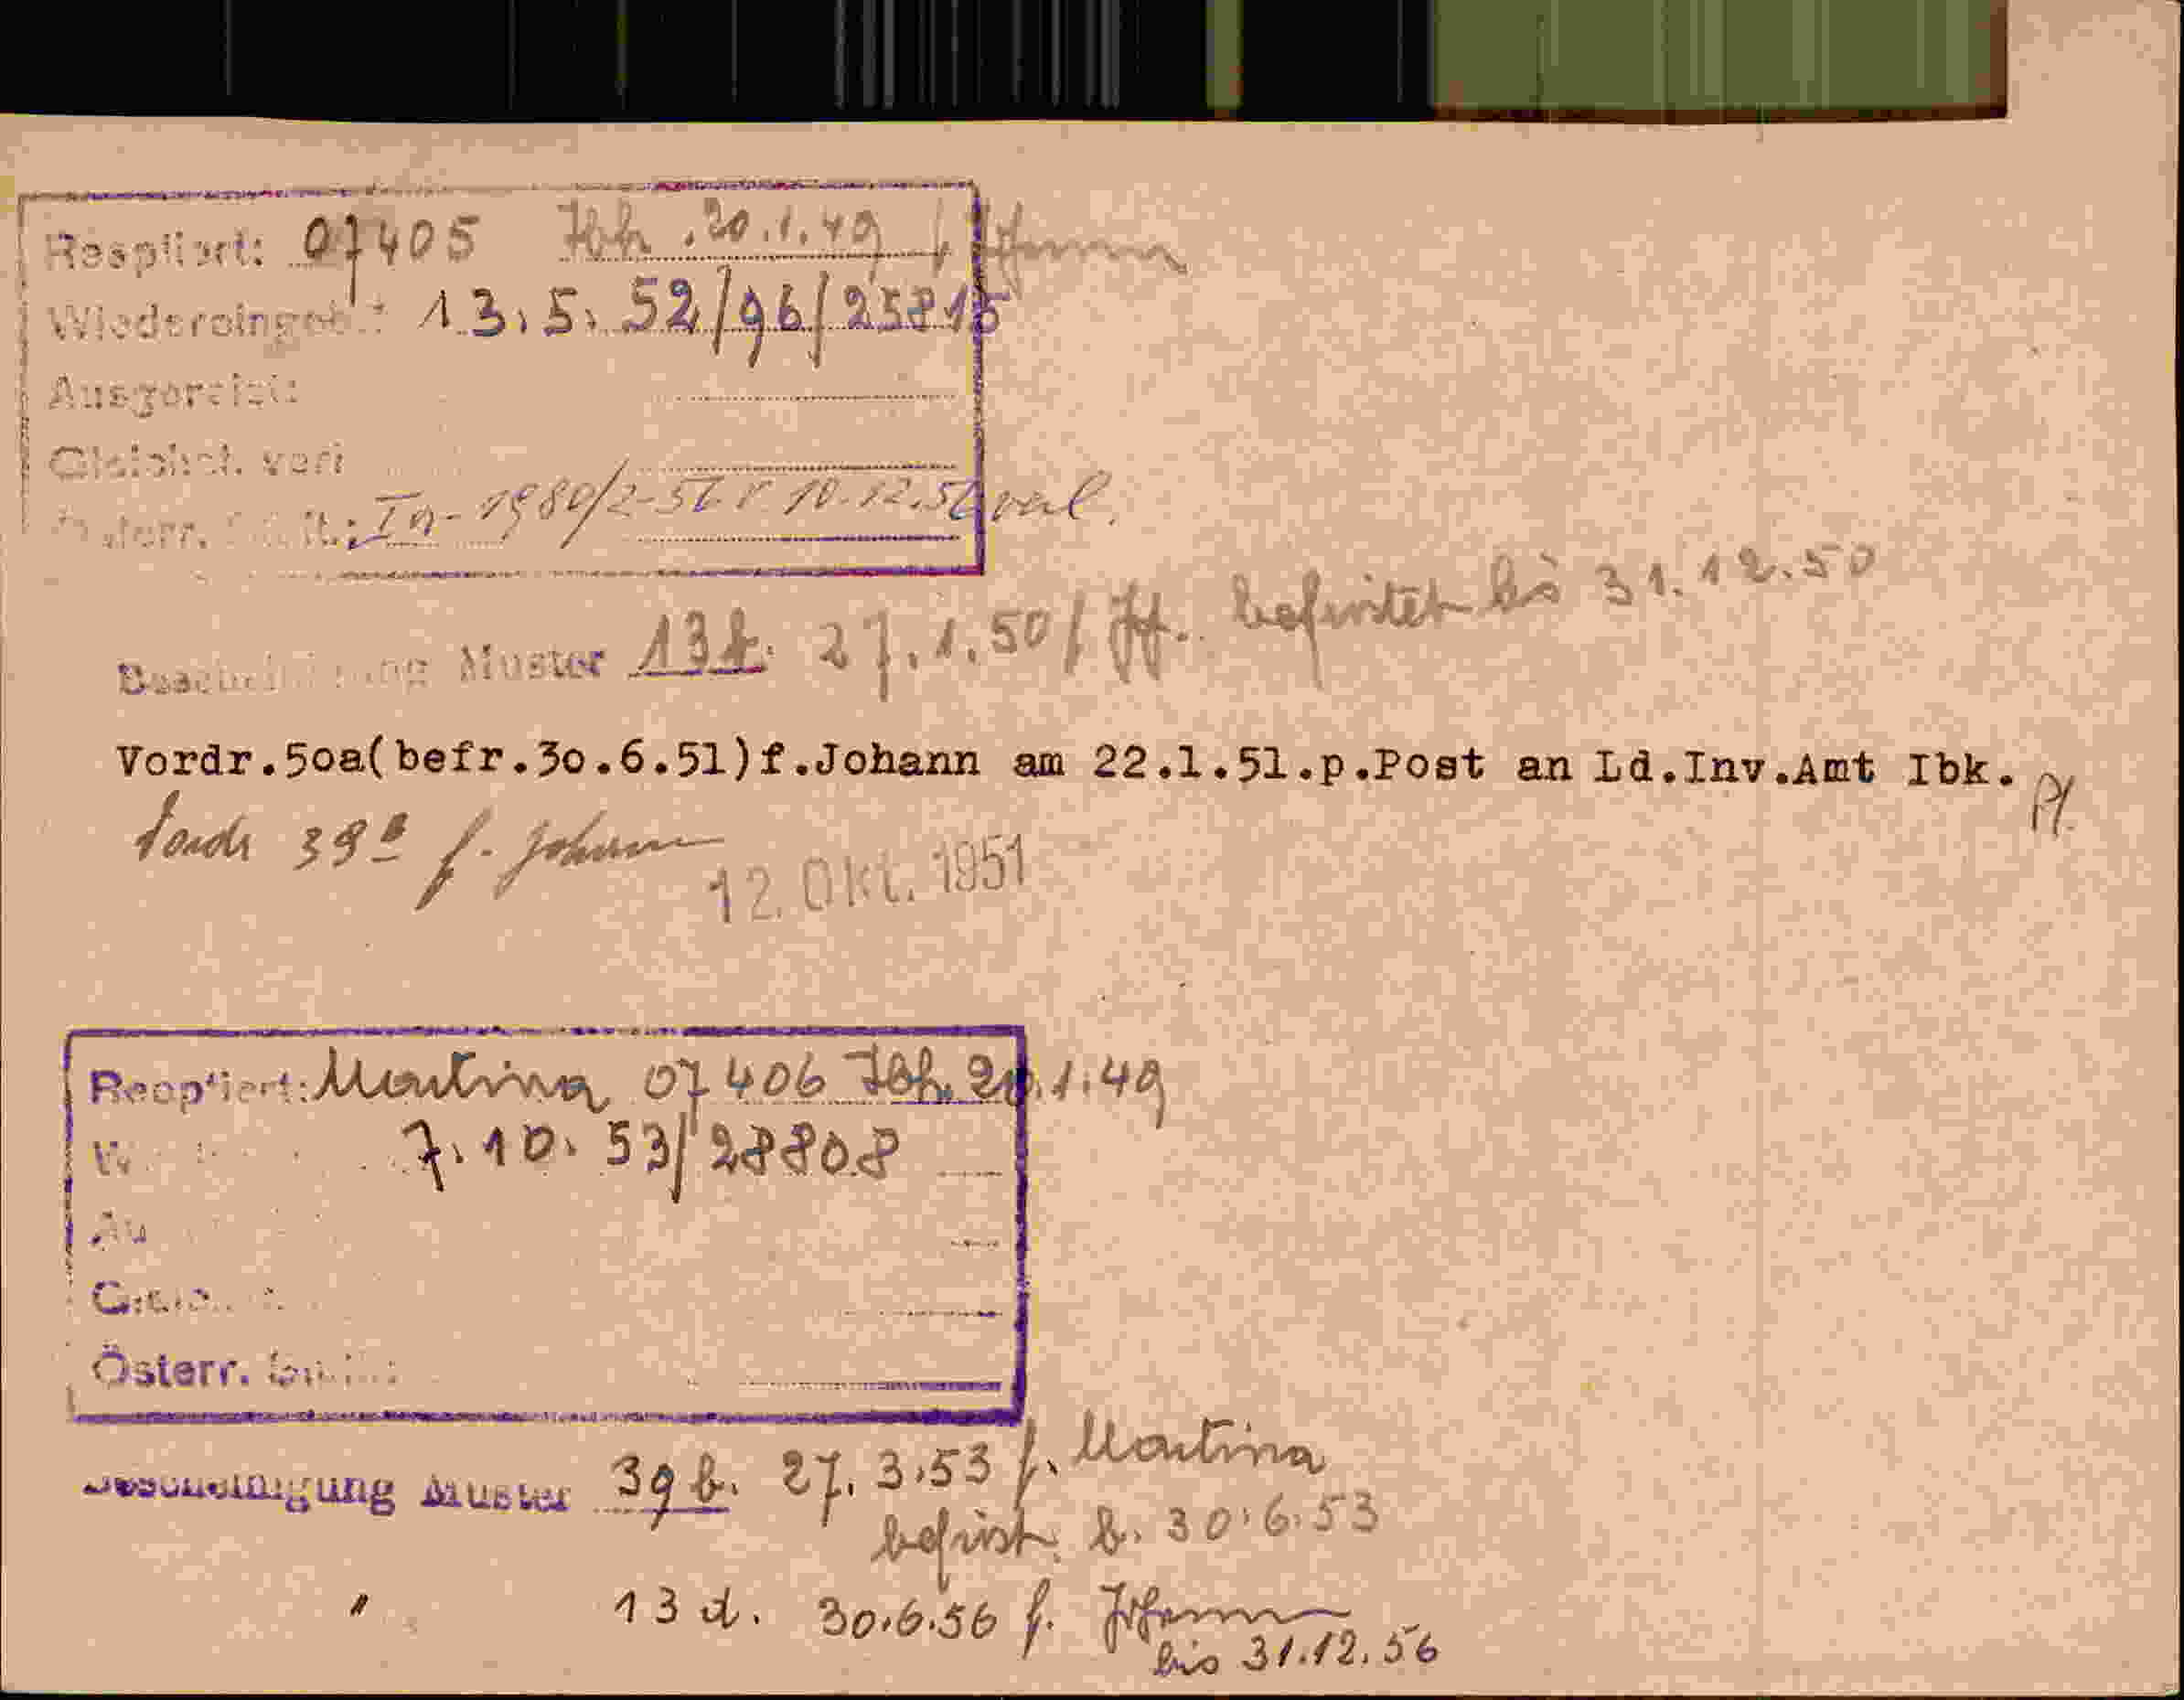 Reoptiert: 07405 Ibk. 20.1.49 / Johann
Wiedereingeb.: 13.5.52/96/25815
Ausgereist:
Gleichst. verl
Österr. : Ia-1980/2-56 v. 10.12.56 verl.
Bescheinigung Muster 13 b. 27.1.50 / befristet bis 31.12.50
Vordr.50a(befr.30.6.51)f.Johann am 22.1.51.p.Post an Ld.Inv.Amt Ibk.
39a f. Johann
12. Okt. 1951
Reoptiert: Martina 07406 Ibk. 20.1.49
7.10.53/28808
Österr.
Bescheinigung Muster 39 b. 27.3.53 f. Martina
befrist. b. 30.6.53
" 13 d. 30.6.56 f. Johann
bis 31.12.56